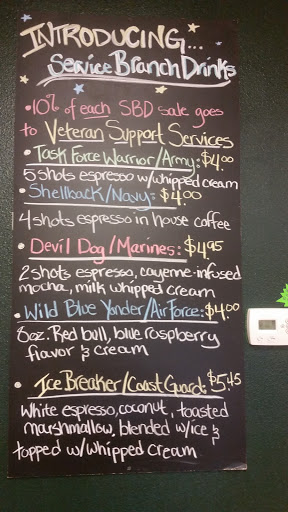 INTRODUCING...
Service Branch Drinks
• 10% of each SBD sale goes
to Veteran Support Services
• Task Force Warrior/Army: $4.00
5 shots espresso w/whipped cream
• Shellback/Navy: $4.00
4 shots espresso in house coffee
• Devil Dog/Marines: $4.95
2 shots espresso, cayenne-infused
mocha, milk whipped cream
• Wild Blue Yonder/Air Force: $4.00
8oz. Red bull, blue raspberry
flavor & cream
• Ice Breaker/Coast Guard: $5.45
White espresso, coconut, toasted
marshmallow, blended w/ice &
topped w/whipped cream